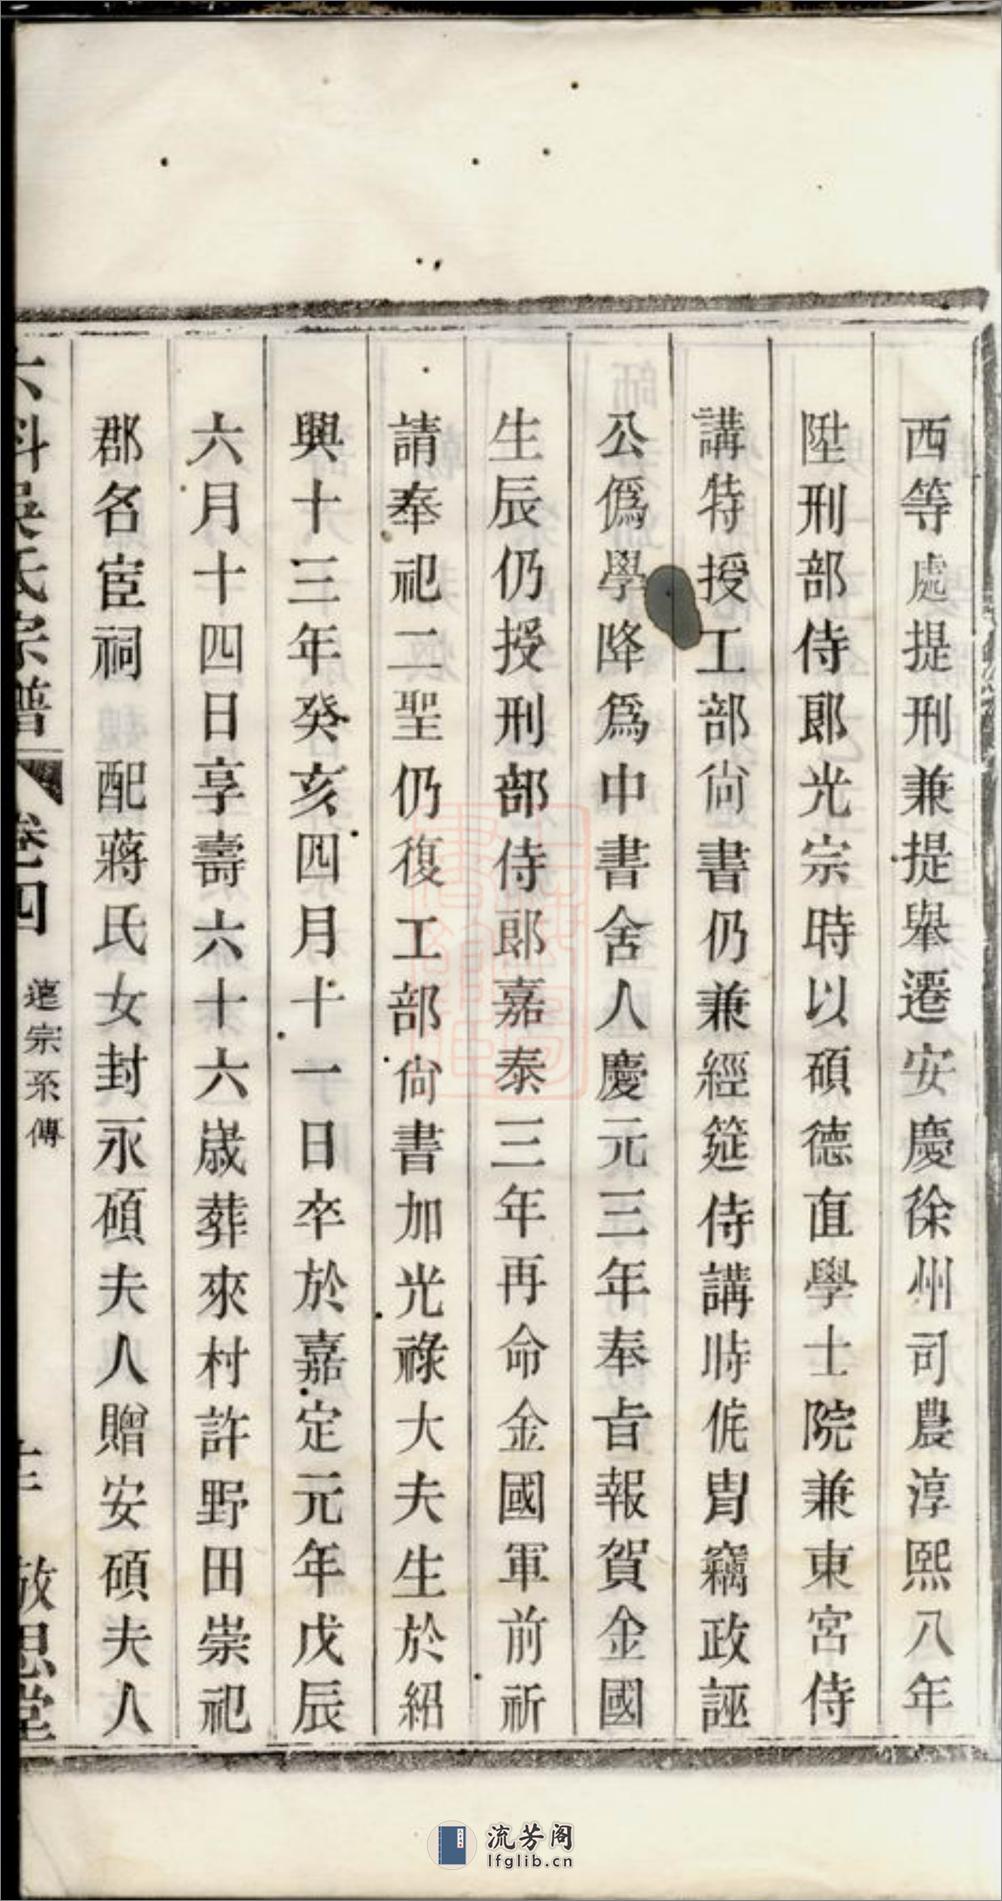 西等處提刑兼提舉遷安慶徐州司農淳熙八年
陞刑部侍郎光宗時以碩德直學士院兼東宮侍
講特授工部尙書仍兼經筵侍講時侂冑竊政誣
公僞學降爲中書舍人慶元三年奉旨報賀金國
生辰仍授刑部侍郎嘉泰三年再命金國軍前祈
請奉祀二聖仍復工部尙書加光祿大夫生於紹
興十三年癸亥四月十一日卒於嘉定元年戊辰
六月十四日享壽六十六歲葬來村許野田崇祀
郡名宦祠 配蔣氏女封永碩夫人贈安碩夫人
吳氏宗譜 卷四 遷宗系傳 敬思堂
流芳阁
lfglib.cn